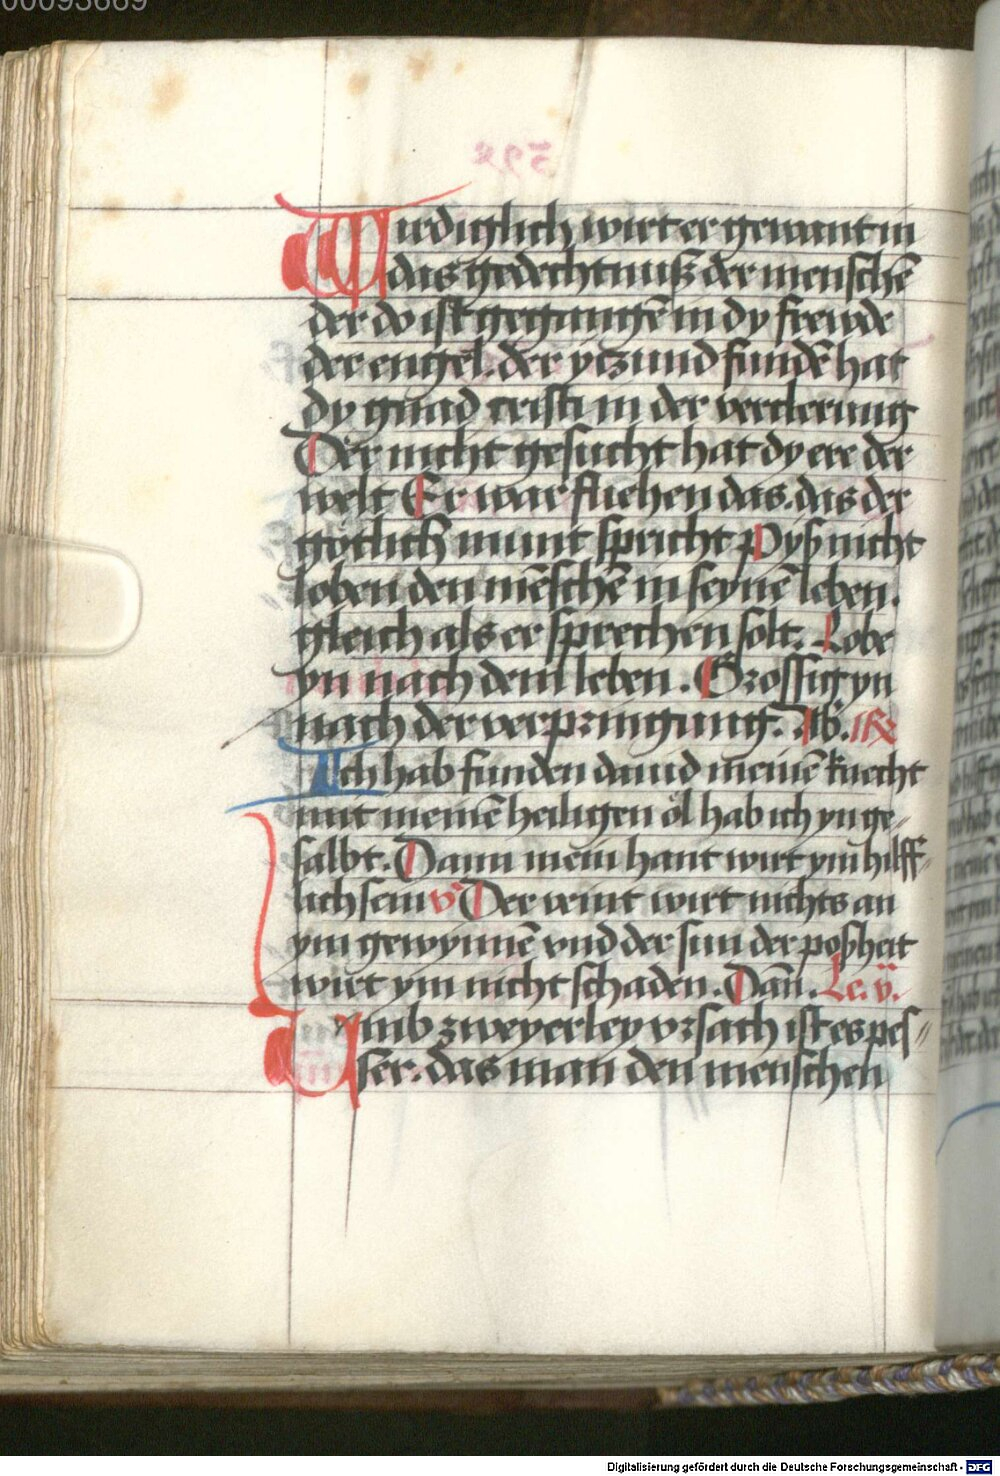 00093669
Wirdiglich wirt er genant in
das gedechtnuß der menschē
der do ist gegangē in dy frewde
der engel. der yczund fundē hat
dy gnad cristi in der verclerung
Der nicht gesucht hat dy ere der
welt Er war fliehen das. das der
götlich munt spricht Pyß nicht
loben den mēschē in seynē leben.
gleich als er sprechen solt. Lobe
yn nach dem leben. Grossig yn
nach der verpringung. Ab.
Ich hab funden dauid meinē knecht
mit meinē heiligen öl hab ich yn ge-
salbt. Dann mein hant wirt ym hilff-
lich sein v̄ Der veint wirt nichts an
ym gewynnē vnd der sun der poßheit
wirt ym nicht schaden. Dañ. Le. ij.
Vmb zweyerley vrsach ist es pes-
ser. das man den menschen
Digitalisierung gefördert durch die Deutsche Forschungsgemeinschaft - DFG